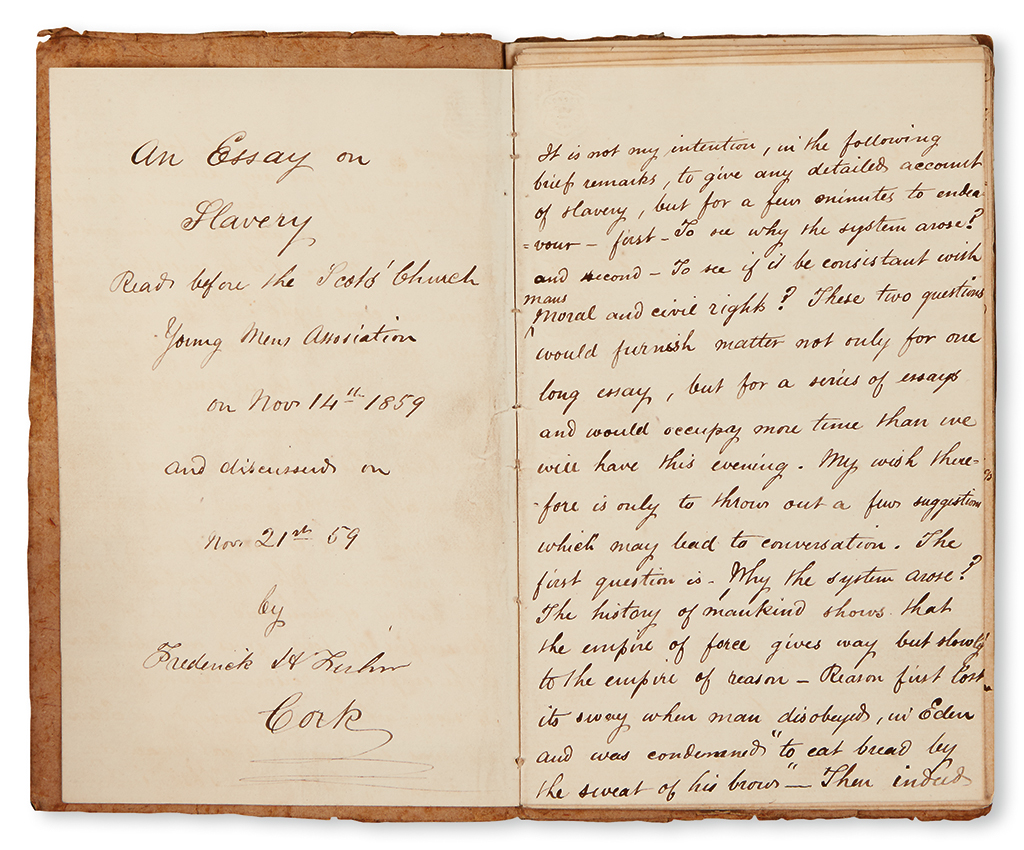 An Essay on
Slavery
Read before the Scots' Church
Young Mens Association
on Nov 14th 1859
and discussed on
Nov 21st 59
by
Frederick H
Cork
It is not my intention, in the following
brief remarks, to give any detailed account
of slavery, but for a few minutes to endea-
=vour - first - To see why the system arose?
and second - To see if it be consistant with
mans
moral and civil right? These two questions
would furnish matter not only for one
long essay, but for a series of essays
and would occupay more time than we
will have this evening. My wish there-
-fore is only to throw out a few suggestions
which may lead to conversation. The
first question is - Why the system arose?
The history of mankind shows that
the empire of force gives way but slowly
to the empire of reason - Reason first lost
its sway when man disobeyed, in Eden
and was condemned "to eat bread by
the sweat of his brow" - Then indeed